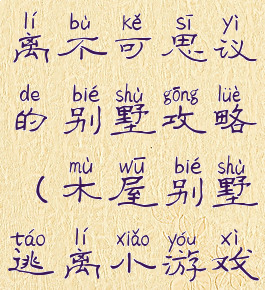 lí bù kě sī yì
离不可思议
de bié shù gōng lüè
的别墅攻略
mù wū bié shù
(木屋别墅
táo lí xiǎo yóu xì
逃离小游戏